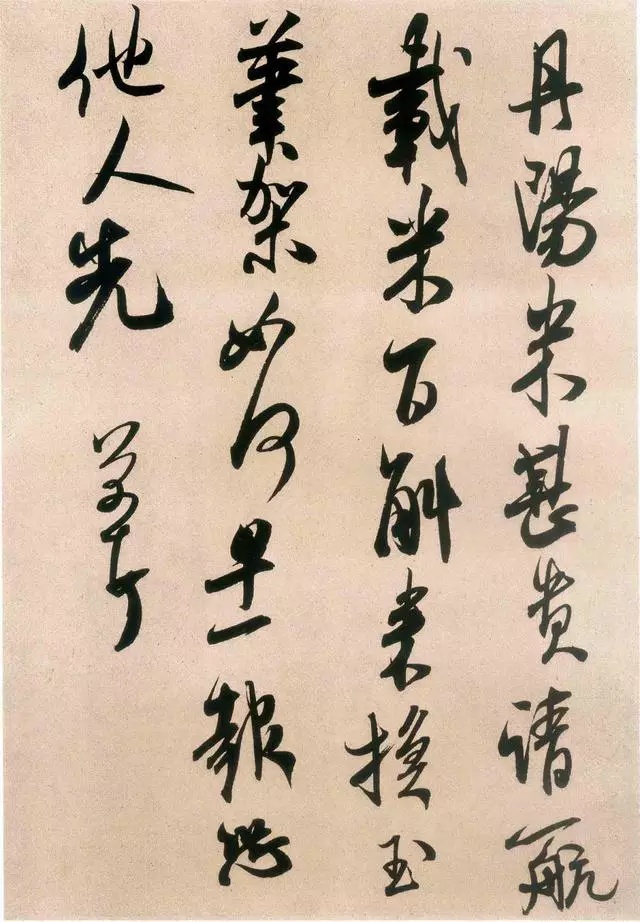 丹陽米甚貴請一航
載米百斛来換玉
筆架如何早一報恐
他人先
芾頓首